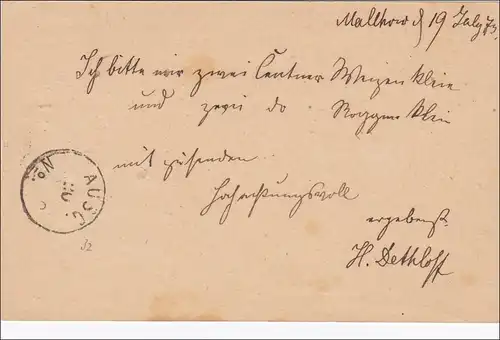 Malchow d 19 July 73.
Ich bitte mir zwei Centner Weizen Kleie
und zwei do Roggen Kleie
mit zusenden.
Hochachtungsvoll
ergebenst
H. Dethloff
AUSG.
No.